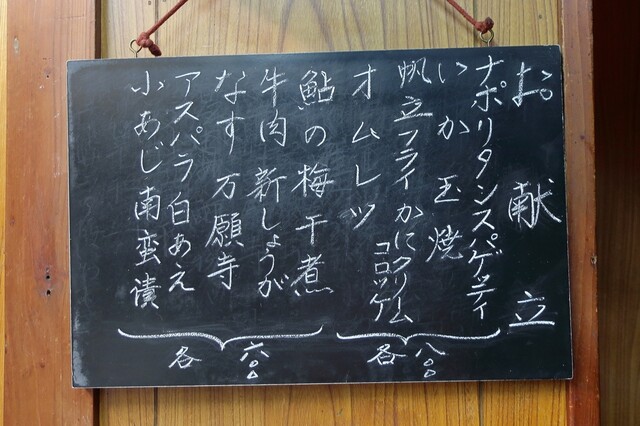 お献立
ナポリタンスパゲッティ
いか玉焼
帆立フライ かにクリームコロッケ
オムレツ
鮎の梅干煮
牛肉 新しょうが
なす 万願寺
アスパラ白あえ
小あじ南蛮漬
各 八〇〇
各 六〇〇